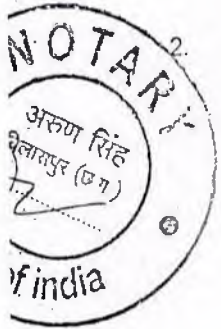 2.
NOTARY
अरुण सिंह
बिलासपुर (छ ग)
of india